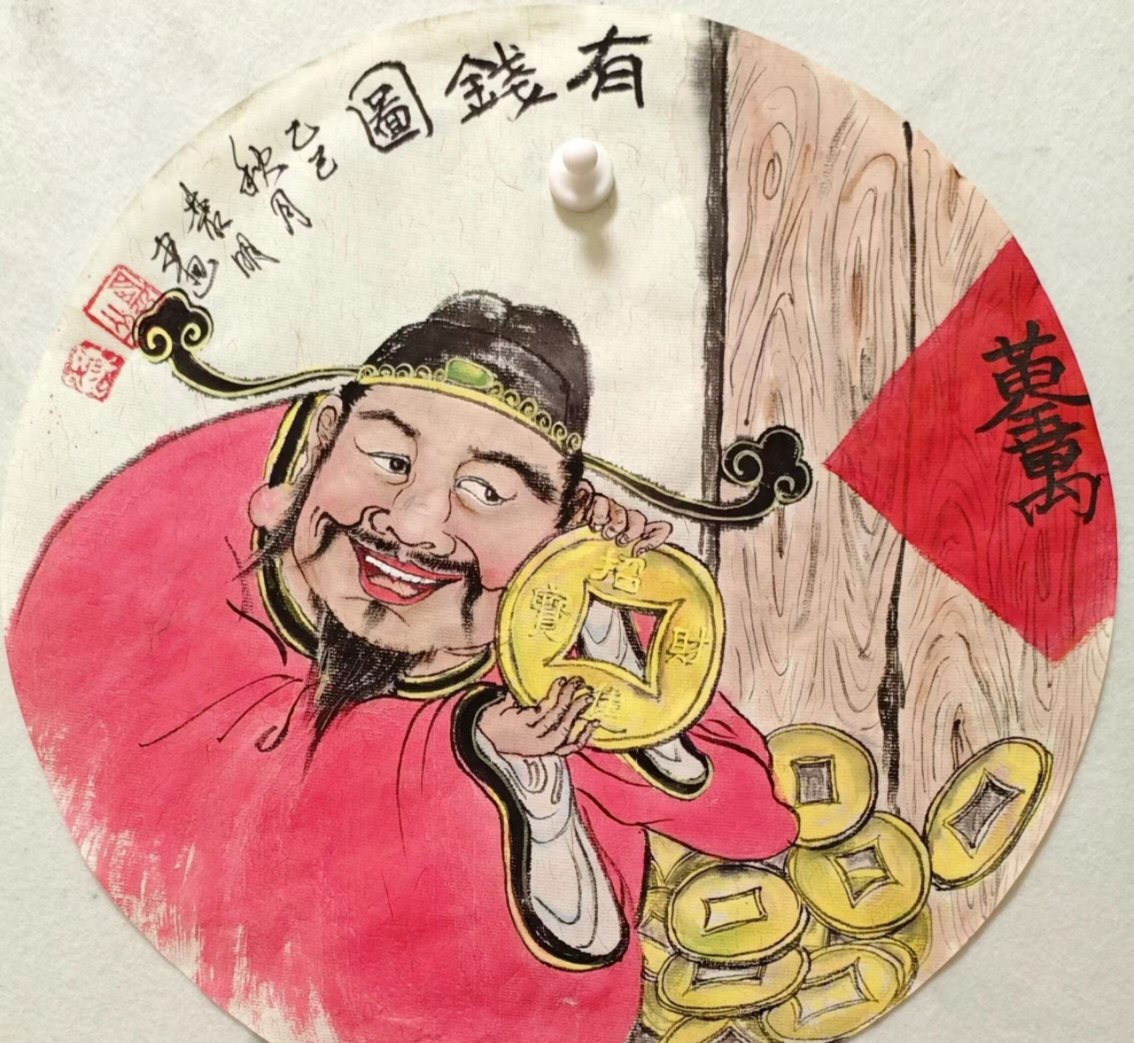 有錢圖
乙巳
秋月
明
畫
招財進寶
黃金萬兩